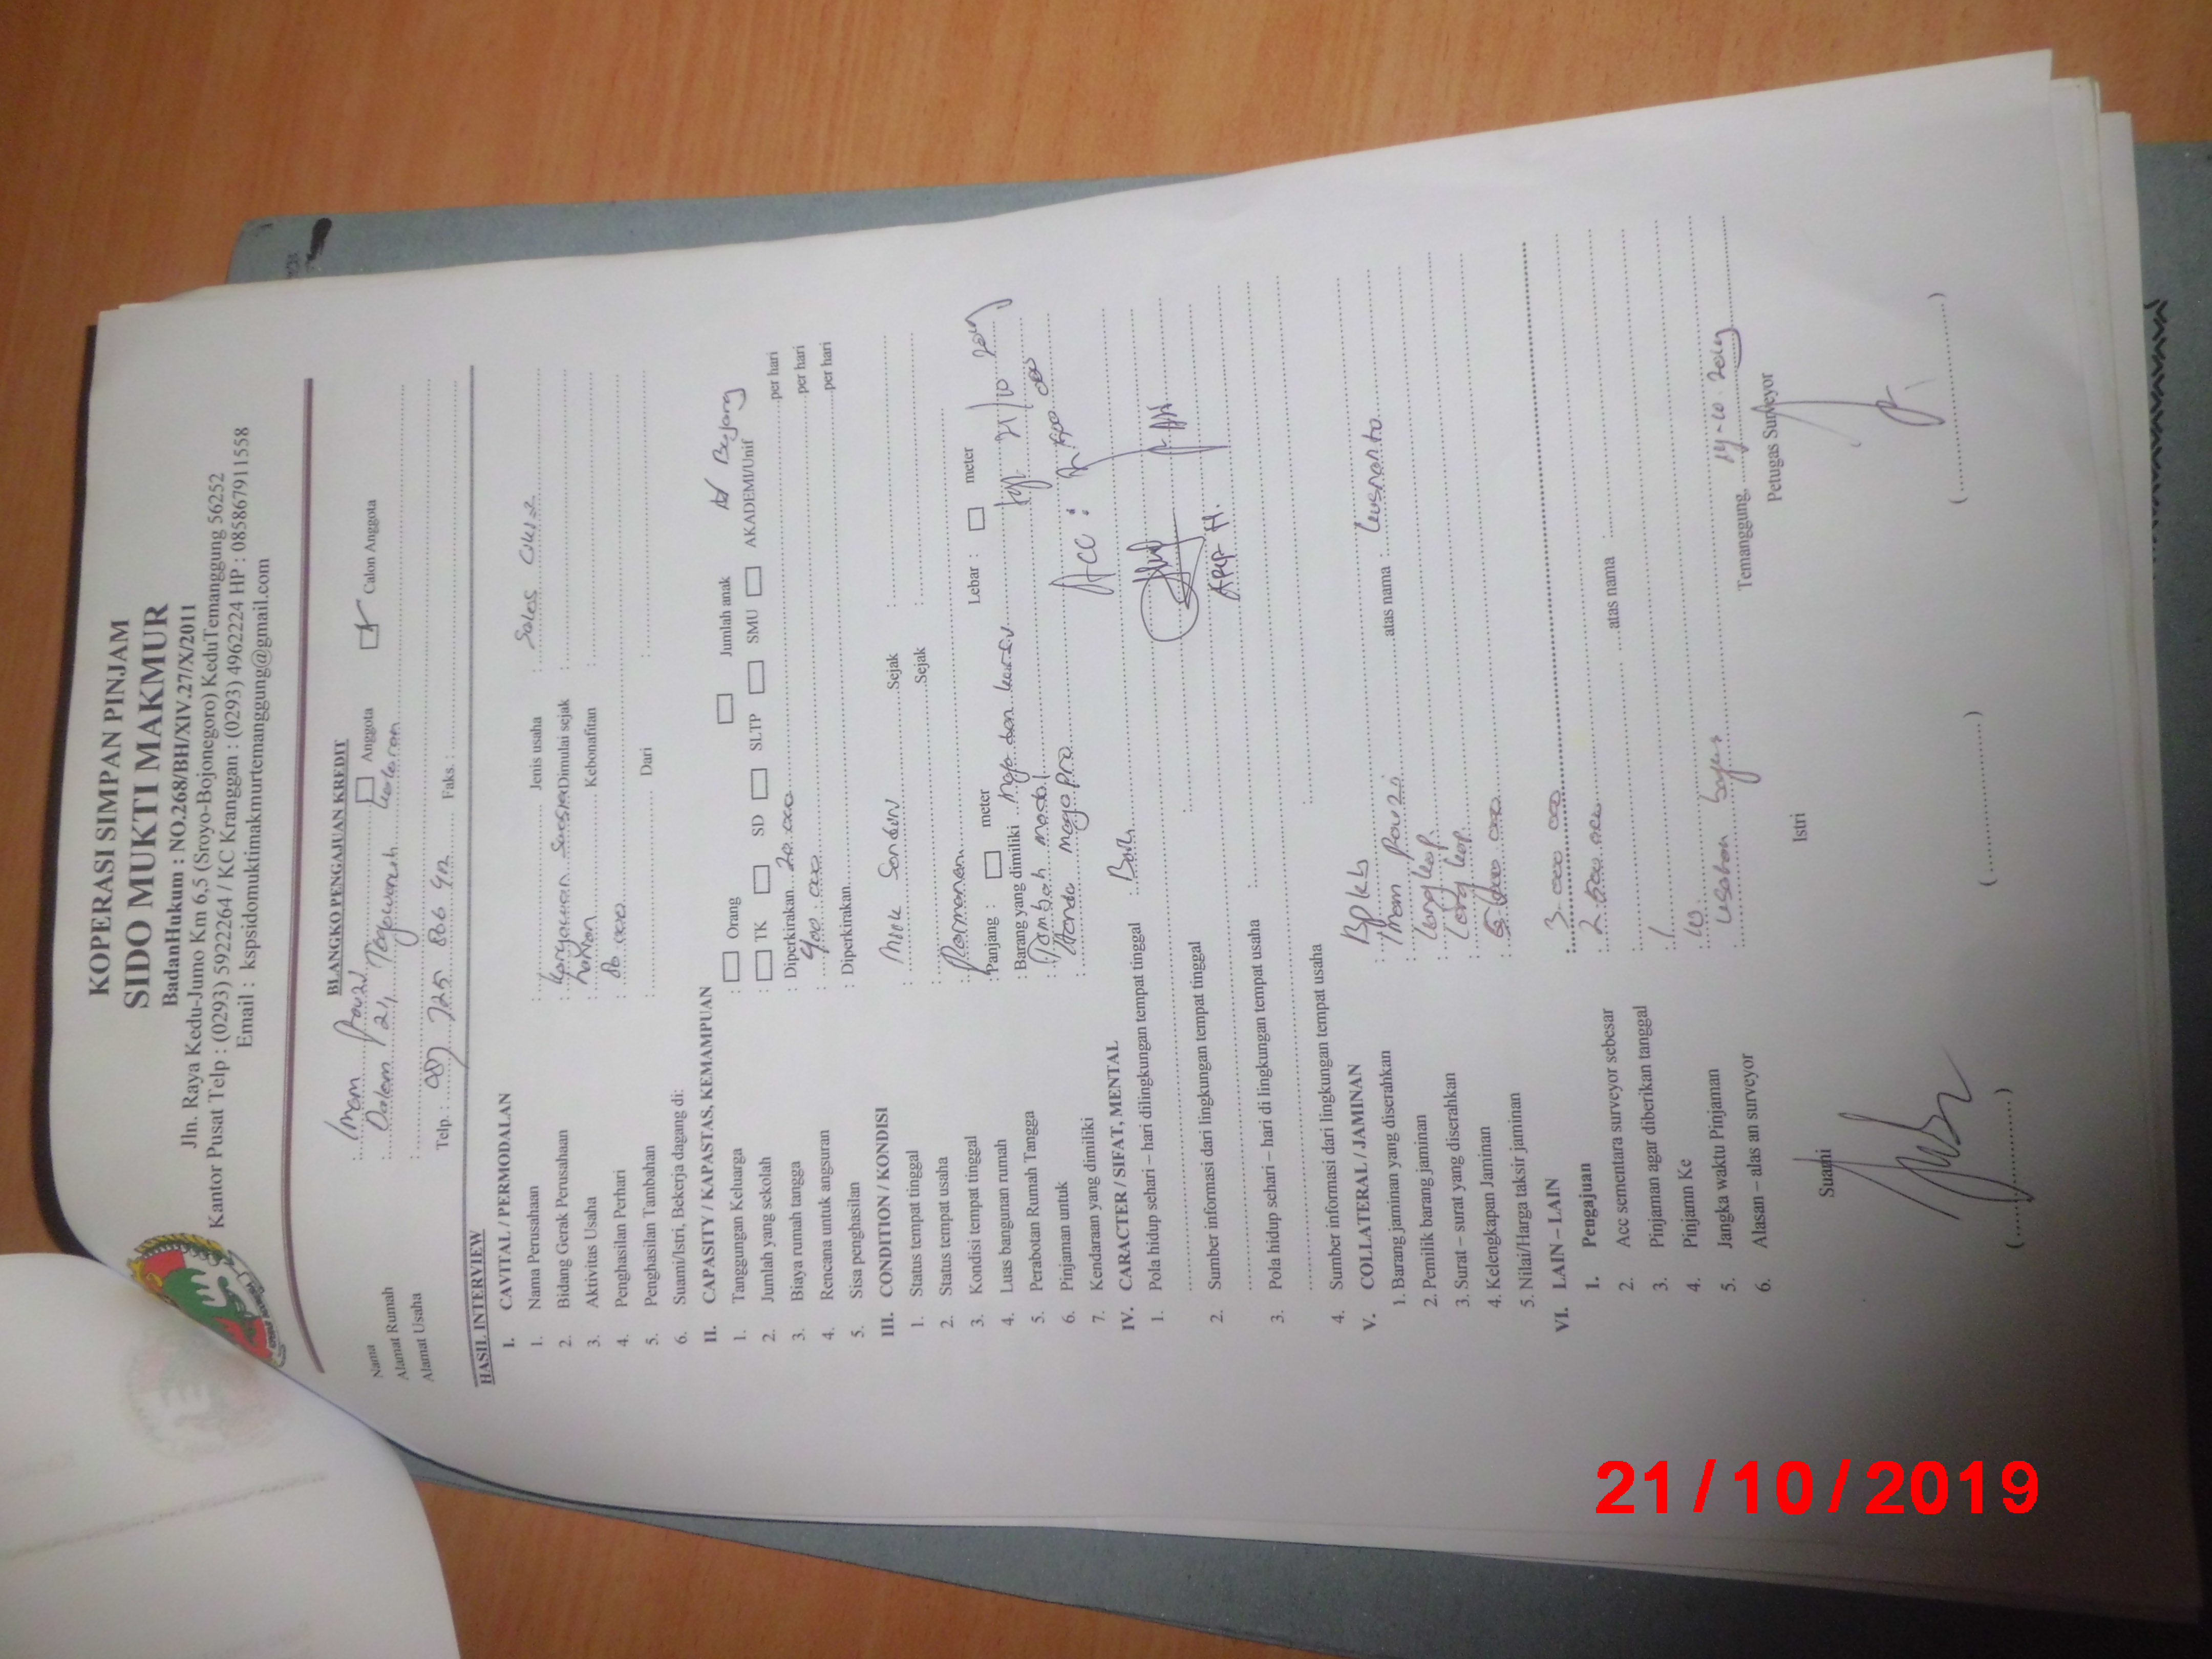 KOPERASI SIMPAN PINJAM
SIDO MUKTI MAKMUR
BadanHukum : NO.268/BH/XIV.27/X/2011
Jln. Raya Kedu-Jumo Km 6,5 (Sroyo-Bojonegoro) KeduTemanggung 56252
Kantor Pusat Telp : (0293) 5922264 / KC Kranggan : (0293) 4962224 HP : 085867911558
Email : kspsidomuktimakmurtemanggung@gmail.com
BLANGKO PENGAJUAN KREDIT
Nama : Imam Fauzi Anggota Calon Anggota
Alamat Rumah : Dalem 2/1
Alamat Usaha :
Telp. : Faks. :
HASIL INTERVIEW
I. CAVITAL / PERMODALAN
1. Nama Perusahaan : Jenis usaha : Sales
2. Bidang Gerak Perusahaan : Karyawan Dimulai sejak :
3. Aktivitas Usaha : harian Kebonafitan :
4. Penghasilan Perhari : 80.000
5. Penghasilan Tambahan : Dari :
6. Suami/Istri, Bekerja dagang di:
II. CAPASITY / KAPASTAS, KEMAMPUAN
1. Tanggungan Keluarga : Orang Jumlah anak Bujang
2. Jumlah yang sekolah : TK SD SLTP SMU AKADEMI/Unif
3. Biaya rumah tangga : Diperkirakan 20.000 per hari
4. Rencana untuk angsuran : 400.000 per hari
5. Sisa penghasilan : Diperkirakan per hari
III. CONDITION / KONDISI
1. Status tempat tinggal : Milik Sendiri Sejak :
2. Status tempat usaha : Sejak :
3. Kondisi tempat tinggal : Parmanen
4. Luas bangunan rumah : Panjang : meter Lebar : meter
5. Perabotan Rumah Tangga : Barang yang dimiliki Meja dan kursi tgl 21/10 2019
6. Pinjaman untuk : Tambah modal
7. Kendaraan yang dimiliki : Honda mega pro ACC :
IV. CARACTER / SIFAT, MENTAL
1. Pola hidup sehari – hari dilingkungan tempat tinggal : Baik
2. Sumber informasi dari lingkungan tempat tinggal :
3. Pola hidup sehari – hari di lingkungan tempat usaha :
4. Sumber informasi dari lingkungan tempat usaha :
V. COLLATERAL / JAMINAN
1. Barang jaminan yang diserahkan : Bpkb
2. Pemilik barang jaminan : Imam Fauzi atas nama : Kusnanto
3. Surat – surat yang diserahkan : Lengkap
4. Kelengkapan Jaminan : Lengkap
5. Nilai/Harga taksir jaminan :
VI. LAIN – LAIN
1. Pengajuan : 3.000 000
2. Acc sementara surveyor sebesar : 2.500.000
3. Pinjaman agar diberikan tanggal : atas nama :
4. Pinjamn Ke : 1
5. Jangka waktu Pinjaman : 10
6. Alasan – alas an surveyor :
Temanggung,
Suami Istri Petugas Surveyor
21/10/2019